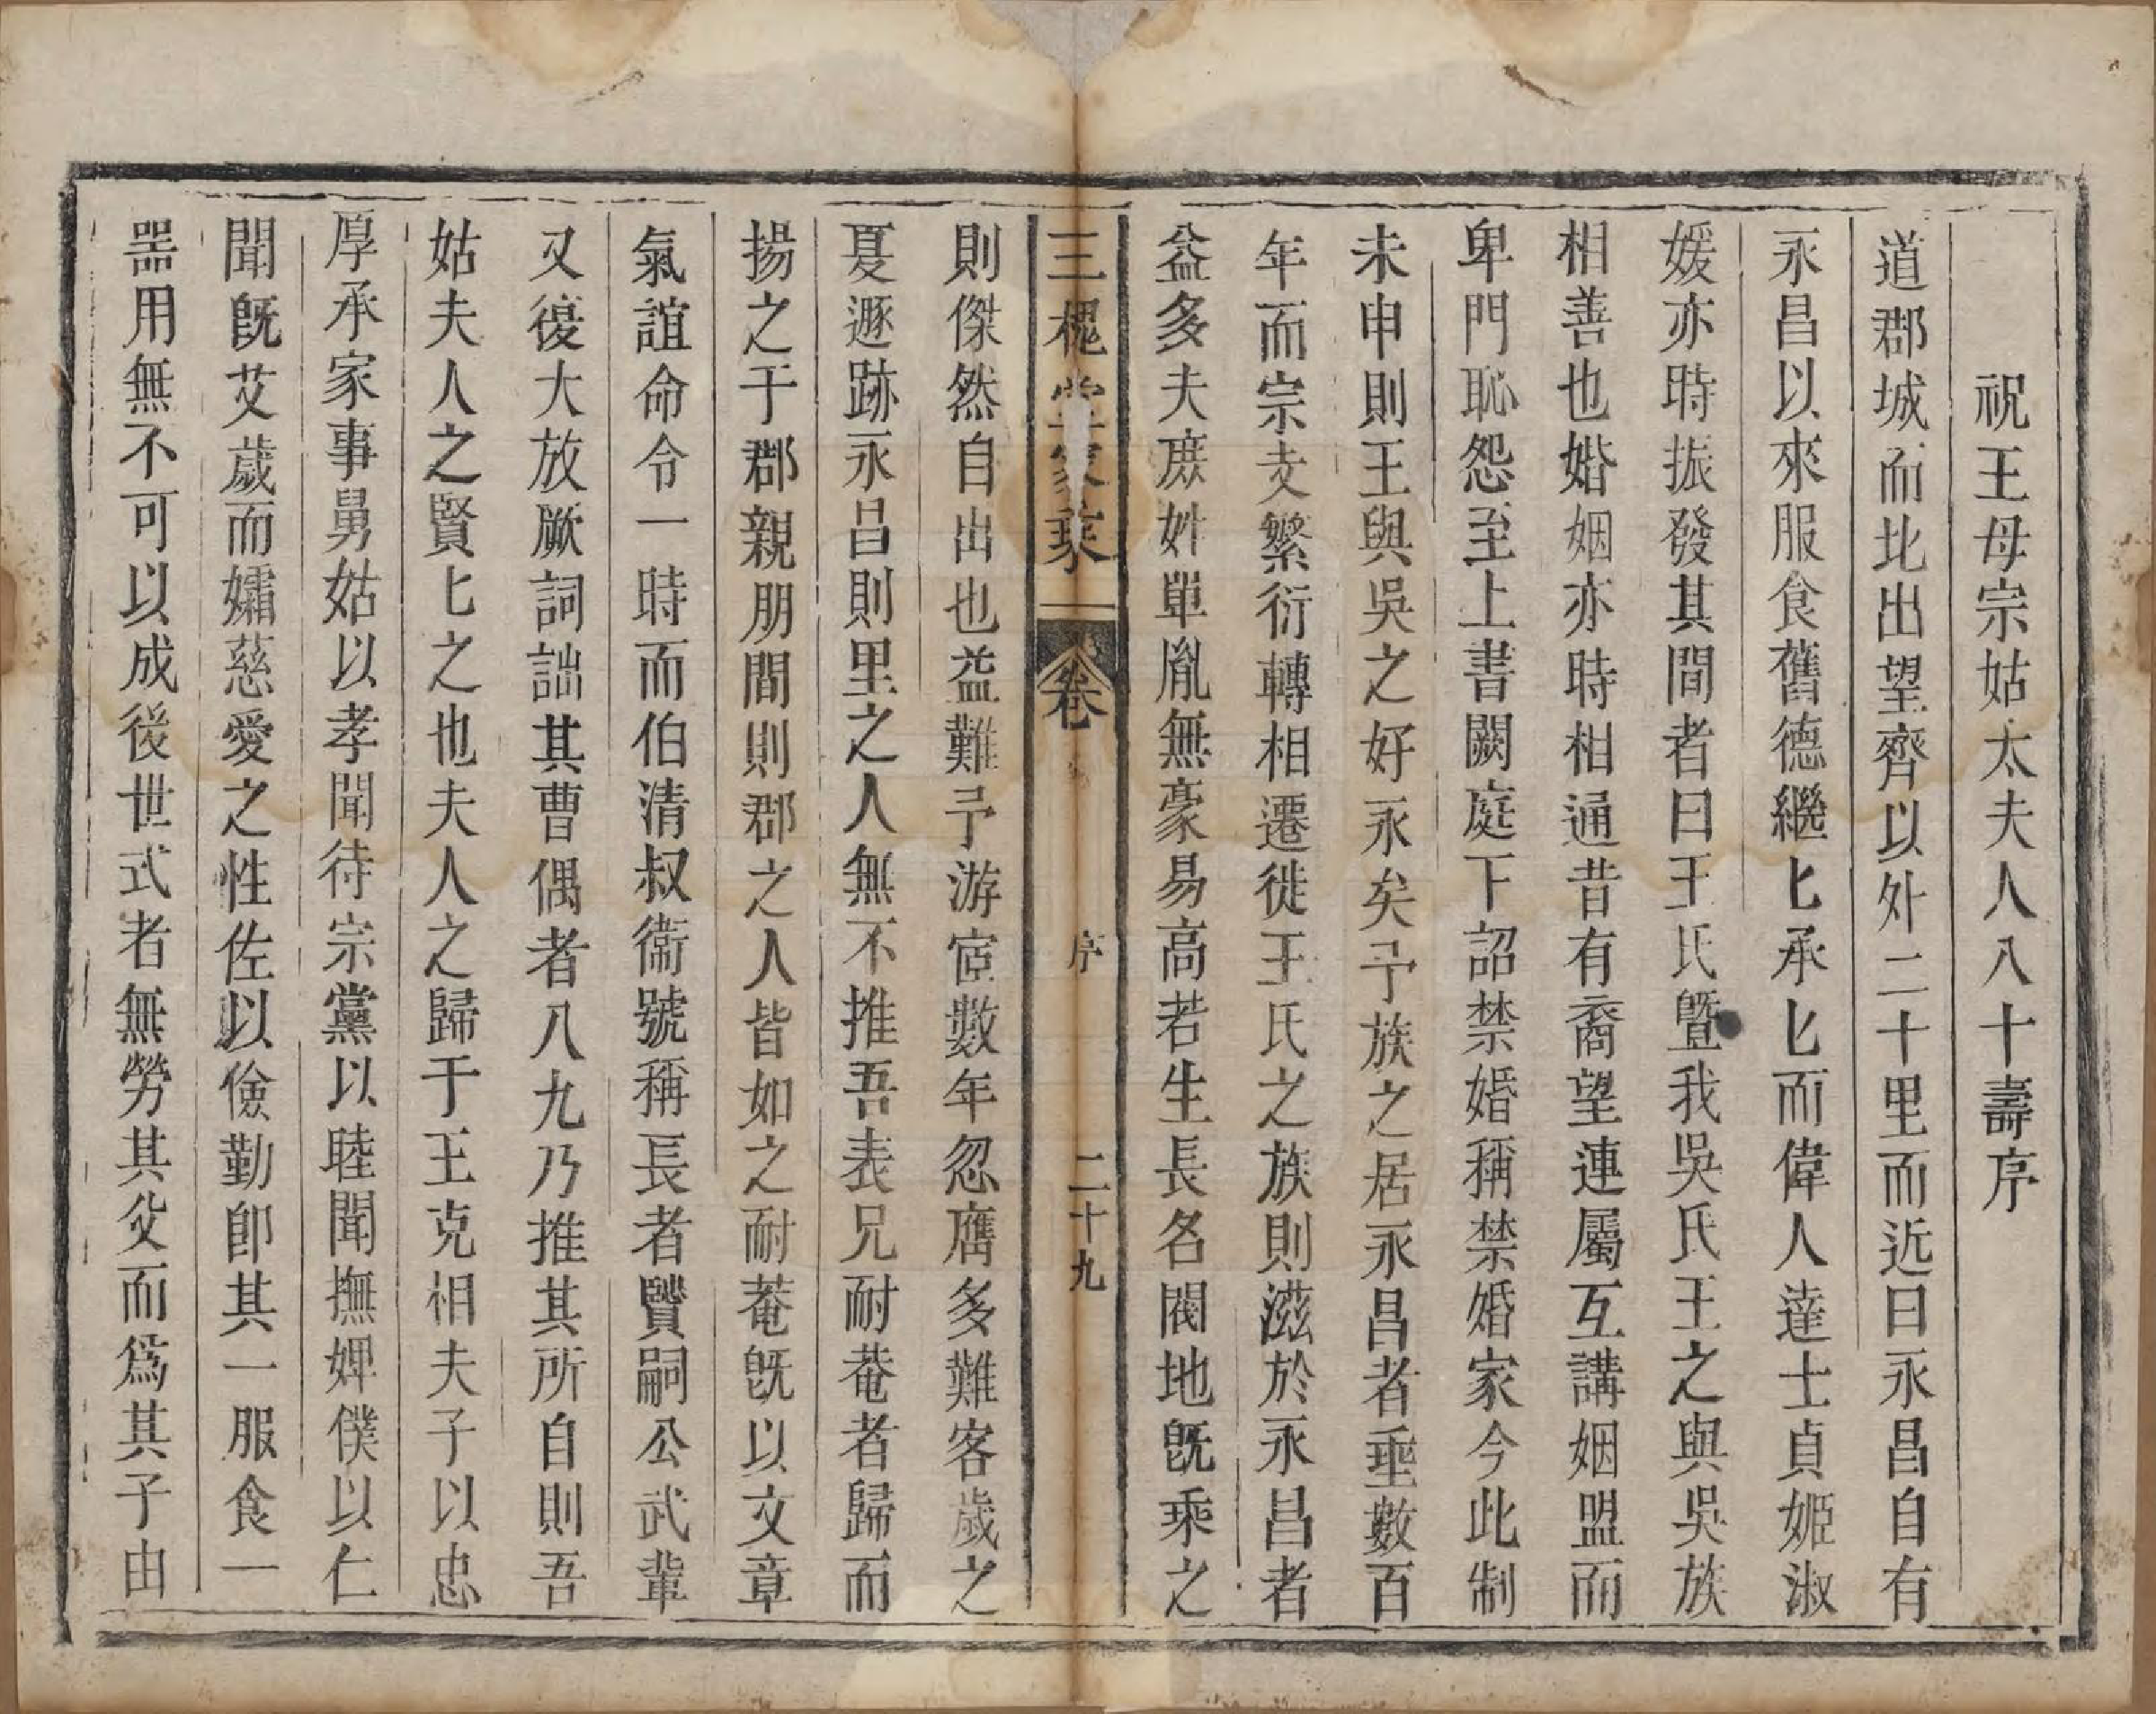 祝王母宗姑太夫人八十壽序
道郡城而北出望齊以外二十里而近曰永昌自有
永昌以來服食舊德繼匕承匕而偉人達士貞姬淑
媛亦時振發其間者曰王氏曁我吳氏王之與吳族
相善也婚姻亦時相通昔有裔望連屬互講姻盟而
卑門恥怨至上書闕庭下詔禁婚稱禁婚家今此制
未申則王與吳之好永矣予族之居永昌者垂數百
年而宗支繁衍轉相遷徙王氏之族則滋於永昌者
益多夫庶姓單胤無豪易高若生長名閥地旣乘之
三槐堂家乘
卷
序
二十九
則傑然自出也益難予游宦數年忽膺多難客歲之
夏遯跡永昌則里之人無不推吾表兄耐菴者歸而
揚之于郡親朋間則郡之人皆如之耐菴旣以文章
氣誼命令一時而伯清叔衞號稱長者贀嗣公武輩
又復大放厥詞詘其曹偶者八九乃推其所自則吾
姑夫人之賢匕之也夫人之歸于王克相夫子以忠
厚承家事舅姑以孝聞待宗黨以睦聞撫婢僕以仁
聞旣艾歲而孀慈愛之性佐以儉勤卽其一服食一
噐用無不可以成後世式者無勞其父而爲其子由